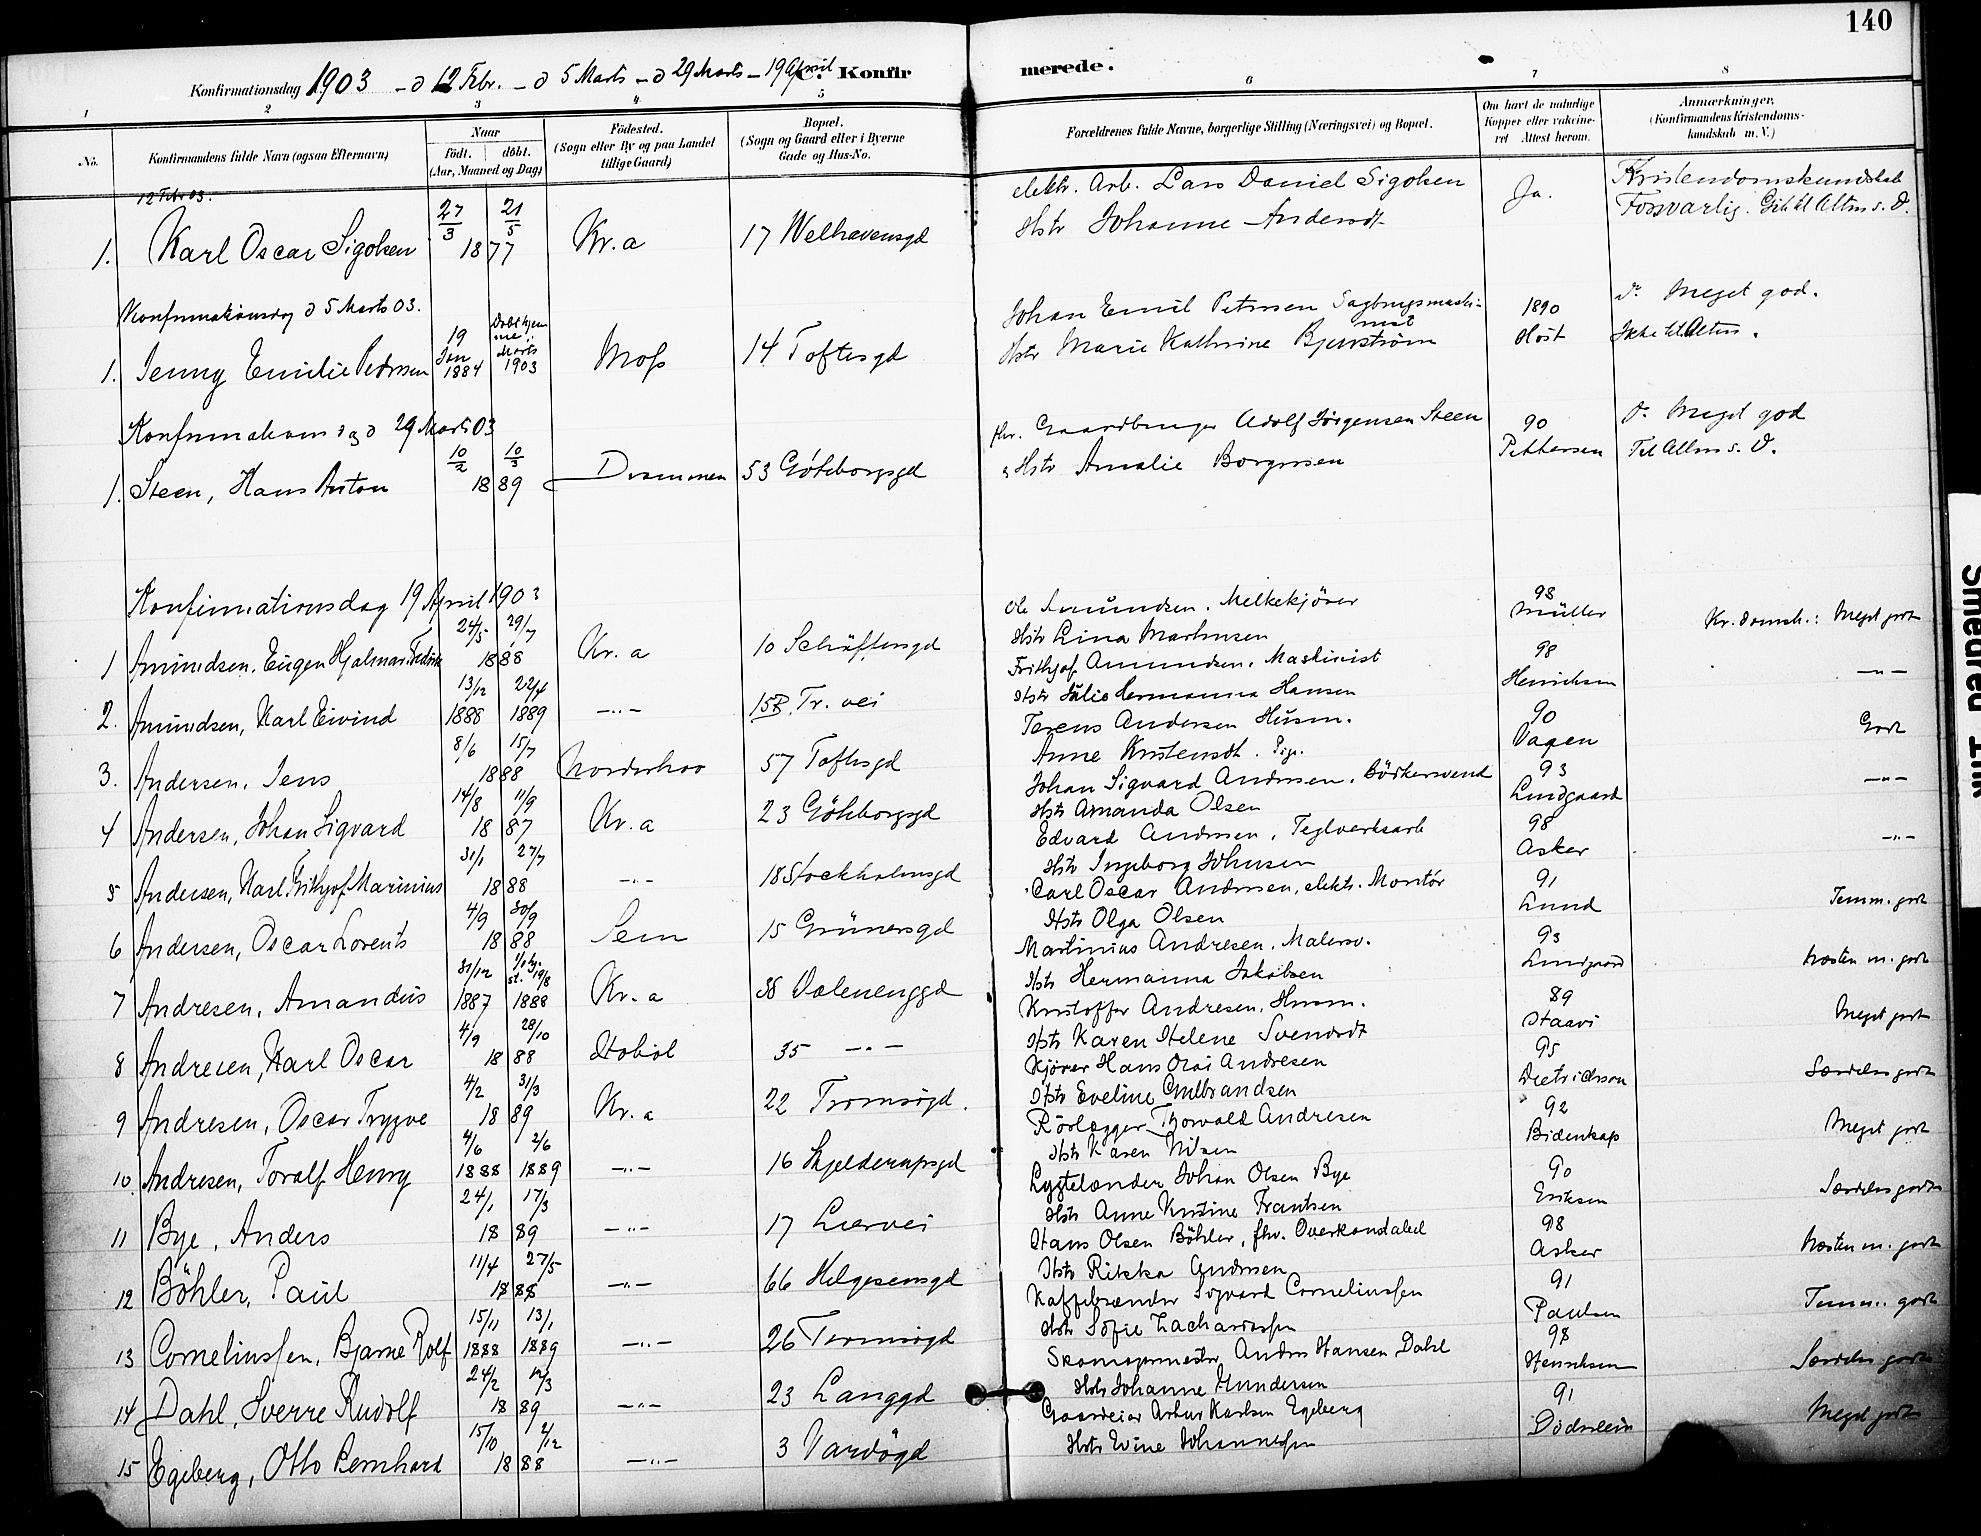 140
Konfirmationsdag 1903 - d 12 Febr. - d 5 Marts - d 29 Marts - 19 April
C. Konfirmerede.
1 2 3 4 5 6 7 8
No.
Konfirmandens fulde Navn (ogsaa Efternavn)
Naar
født. døbt.
(Aar, Maaned og Dag)
Fødested.
(Sogn eller By og paa Landet
tillige Gaard)
Bopæl.
(Sogn og Gaard eller i Byerne
Gade og Hus-No.
Forældrenes fulde Navne, borgerlige Stilling (Næringsvei) og Bopæl.
Om havt de naturlige
Kopper eller vaccineret
Attest herom.
Anmærkninger,
(Konfirmandens Kristendomskundskab
m. V.)
12 Febr 03.
1. Karl Oscar Sigolsen 27/3 21/5 1877 Kr.a 17 Welhavensgd
elektr. Arb. Lars Daniel Sigolsen
Hstr Johanne Andersdt
Ja.
Kristendomskundskab
Forsvarlig.
Konfirmationsdag d 5 Marts 03.
1. Jenny Emilie Pedersen 19 Jan 1884 Marts 1903 Moss 14 Toftesgd
Johan Emil Petersen Sagbrugsmaskinist
Hstr Marie Kathrine Bjurstrøm
1890
Høst
Meget god.
Ikke til Alters.
Konfirmationsdag d 29 Marts 03
1. Steen, Hans Anton 10/2 10/3 1889 Drammen 53 Göteborgsgd
fhv. Gaardbruger Adolf Jörgensen Steen
Hstr Amalie Borgersen
90
Pettersen
Meget god
Til Alters s. D.
Konfirmationsdag 19 April 1903
1 Amundsen, Eugen Hjalmar Fredrik 24/5 29/7 1888 Kr.a 10 Schäftesgd
Ole Amundsen. Melkekjörer
Hstr Lina Martinsen
98
Müller
Kr.domsk.: Meget godt
2. Amundsen, Karl Eivind 13/12 1888 22/4 1889 -"- 15B Tr. vei
Frithjof Amundsen. Maskinist
Hstr Julie Hermanna Hansen
98
Henriksen
-"-
3. Andersen, Jens 8/6 15/7 1888 Norderhov 57 Toftesgd
Terens Andersen Husm.
Anne Kristensdt. Pige.
90
Vagen
Godt
4 Andersen, Johan Sigvard 14/8 11/9 1887 Kr.a 23 Göteborggd
Johan Sigvard Andersen. Bödkersvend
Hstr Amanda Olsen
93
Lundgaard
-"-
5 Andersen, Karl Frithjof Marinius 31/1 27/7 1888 -"- 18 Stockholmsgd
Edvard Andersen, Teglverksarb
Hstr Ingeborg Johnsen
98
Asker
-"-
6 Andersen, Oscar Lorents 4/9 30/9 1888 Sem 15 Grünersgd
Carl Oscar Andersen, elektr. Montör
Hstr Olga Olsen
91
Lund
Temm. godt
7 Andresen, Amandus 31/12 1887 19/8 1888 Kr.a 38 Valerenggd
Martinius Andresen. Malersv.
Hstr Hermanna Jakobsen
93
Lundgaard
Næsten m. godt
8 Andresen, Karl Oscar 4/9 28/10 1888 Hobøl 35 -"-
Kristoffer Andresen, Husm.
Hstr Karen Helene Svendsdt
89
Staavi
Meget godt
9 Andresen, Oscar Trygve 4/2 31/3 1889 Kr.a 22 Tromsögd.
Kjörer Hans Olai Andresen
Hstr Eveline Gulbrandsen
95
Dietrichson
Særdeles godt
10. Andresen, Toralf Henry 4/6 1888 2/6 1889 -"- 16 Skjelderupsgd
Rörlægger Thorvald Andresen
Hstr Karen Nilsen
92
Bidenkap
Meget godt
11 Bye, Anders 24/1 17/3 1889 -"- 17 Liervei
Lygtetænder Johan Olsen Bye
Hstr Anne Kristine Frantsen
90
Eriksen
Særdeles godt
12 Böhler, Paul 11/4 27/5 1888 -"- 66 Helgesensgd
Hans Olsen Böhler, fhv. Overkondukt
Hstr Rikka Andersen
98
Asker
Næsten m. godt
13 Corneliussen, Bjarne Rolf 15/11 1888 13/1 1889 -"- 26 Tromsögd
Kaffebrænder Sigvard Corneliussen
Hstr Sofie Zachariassen
91
Paulsen
Temm. godt
14 Dahl, Sverre Rudolf 24/2 1889 -"- 23 Langgd
Skomagermester Anders Hansen Dahl
Hstr Johanne Gundersen
98
Henriksen
Særdeles godt
15 Egeberg, Otto Bernhard 15/10 2/12 1888 -"- 3 Vardögd
Gaardeier Arthur Karlsen Egeberg
Hstr Evine Johannessen
91
Döderlein
Meget godt
Smedrud Trk